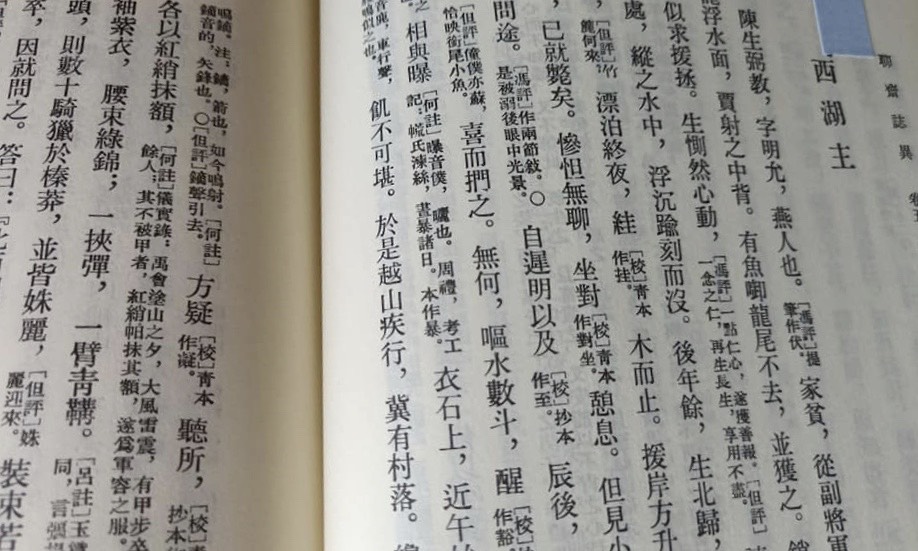 聊齋誌異 卷
西湖主
陳生弼教，字明允，燕人也。[馮評]提筆作伏。家貧，從副將軍
龍浮水面，賈射之中背。有魚啣龍尾不去，並獲之。
似求援拯。生惻然心動，[馮評]一點仁心，遂獲善報。[但評]一念之仁，再生長生，享用不盡。
處，縱之水中，浮沉踰刻而沒。後年餘，生北歸，
[但評]竹簏何來。漂泊終夜，絓[校]青本作挂。木而止。援岸方升
已就斃矣。慘怛無聊，坐對[校]青本作對坐。憩息。但見小
問途。[馮評]作兩節敍。○是被溺後眼中光景。自遲明以及[校]抄本作至。辰後，
[但評]僮僕亦蘇，恰映銜尾小魚。喜而捫之。無何，嘔水數斗，醒[校]作豁
之相與曝[何註]曝音僕，曬也。周禮，考工記：㡛氏湅絲，晝暴諸日。本作暴。衣石上，近午
車行聲，鳴似之也。飢不可堪。於是越山疾行，冀有村落。
鳴鏑。注：鏑，箭也，如今鳴射。[何註]鏑音的，矢鋒也。○[但評]鏑聲引去。方疑[校]青本作凝。聽所，[校]抄本作
各以紅綃抹額，[何註]儀實錄：禹會塗山之夕，大風雷震，有甲步卒餘人，其不被甲者，紅綃帕抹其額，遂爲軍容之服。
袖紫衣，腰束綠錦；一挾彈，一臂青鞲。[呂註]玉同，言張
頭，則數十騎獵於榛莽，並皆姝麗，[但評]姝麗迎來。裝束若
卒，因就問之。答曰：『此